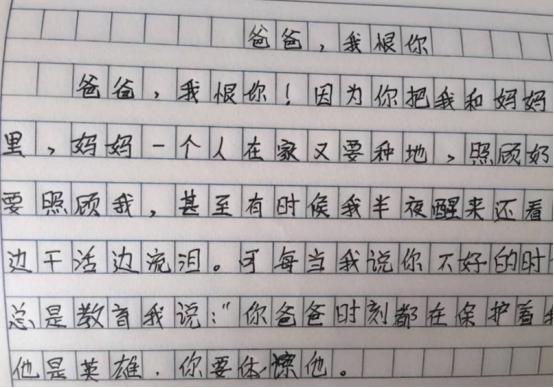 爸爸，我恨你
爸爸，我恨你！因为你把我和妈妈
里，妈妈一个人在家又要种地，照顾奶
要照顾我，甚至有时侯我半夜醒来还看
边干活边流泪。可每当我说你不好的时
总是教育我说：“你爸爸时刻都在保护着
他是英雄．你要体嫽他。